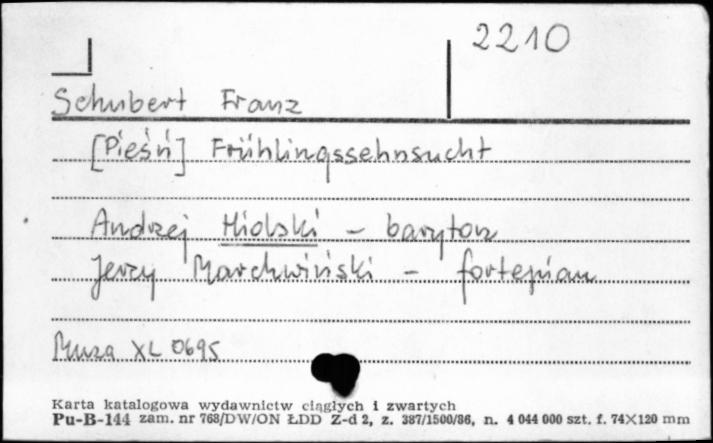 2210
Schubert Franz
[Pieśń] Frühlingssehnsucht
Andrzej Hiolski – baryton
Jerzy Marchwiński – fortepian
Muza XL 0695
Karta katalogowa wydawnictw ciągłych i zwartych
Pu-B-144 zam. nr 768/DW/ON ŁDD Z-d 2, z. 387/1500/86, n. 4 044 000 szt. f. 74×120 mm